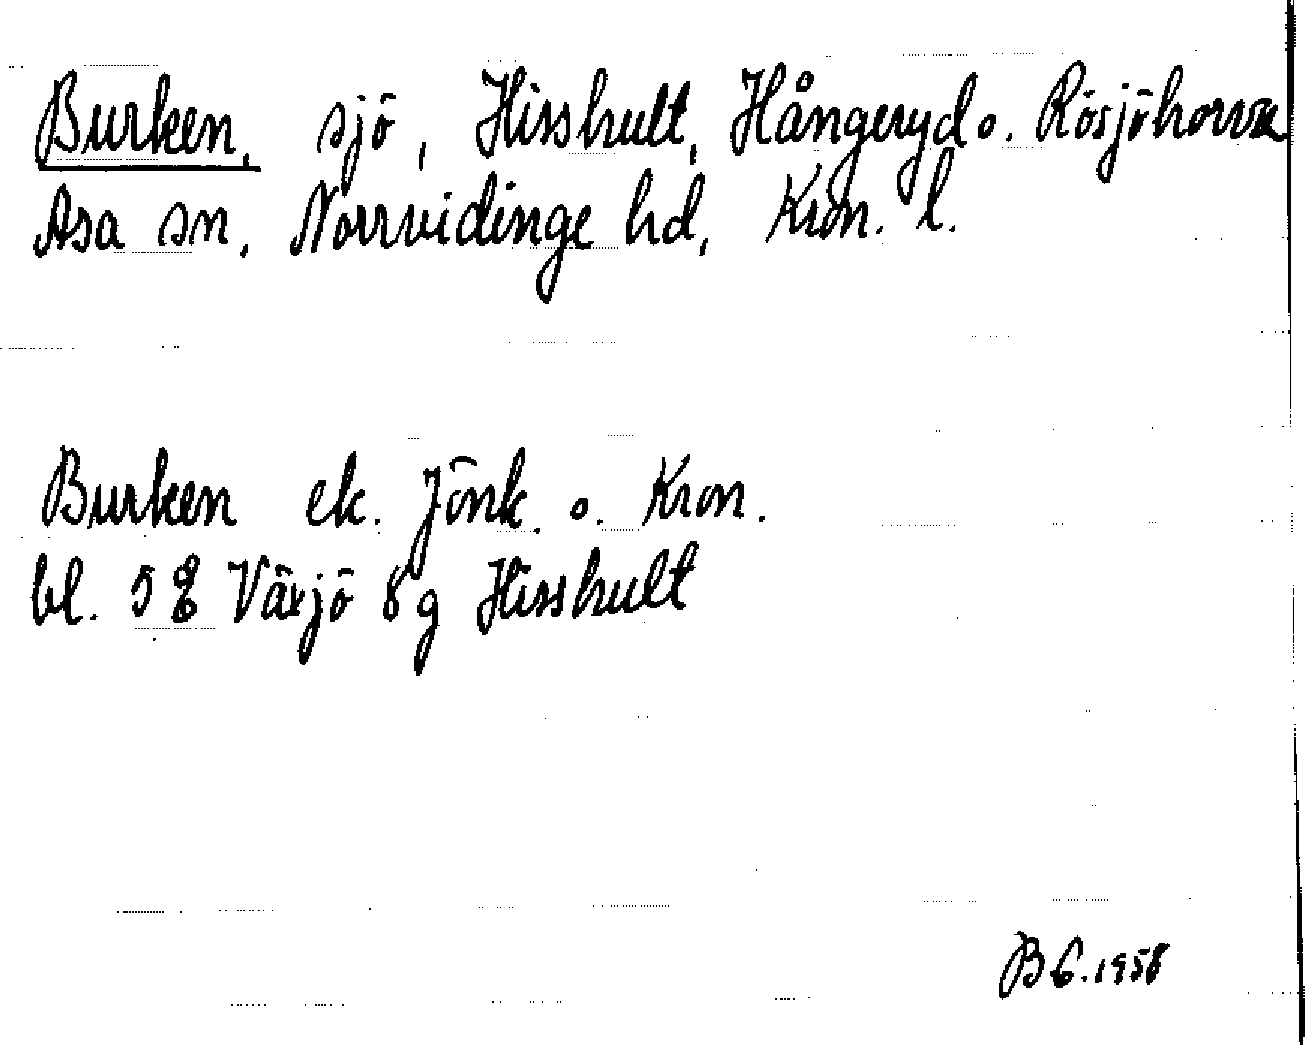 Burken, sjö, Hisshult, Hångeryd o. Rösjöhorva
Asa sn, Norrvidinge hd, Kron. l.
Burken ek. Jönk. o. Kron.
bl. 5 E Växjö 8g Hisshult
B G. 1958